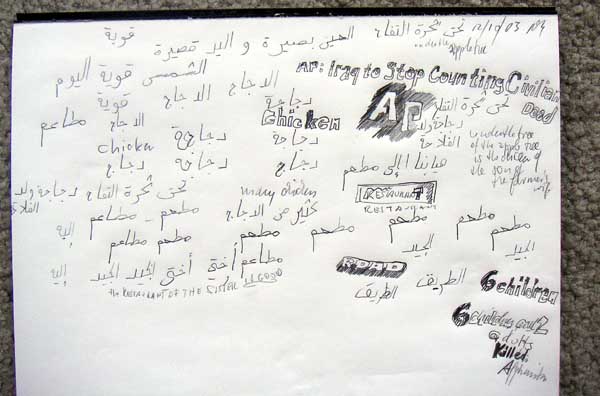 العين بصيرة و اليد قصيرة
قوية
تحت شجرة التفاح
12/10/03
under the
apple tree
الشمس قوية اليوم
AP: Iraq to Stop Counting Civilian
Dead
الدجاج الدجاج
دجاجة
قوية
الدجاج مطاعم
chicken
AP
تحت شجرة التفاح
دجاجة ولد
الفلاحة
under the tree
of the apple tree
is the chicken of
the son of
the farmer's
wife
دجاجة دجاجة
chicken
دجاج دجاجة دجاج
إلى مطعم
RESTAURANT
RESTAURANT
تحت شجرة التفاح دجاجة ولد
الفلاحة
many chicken
كثير من الدجاج
مطعم - مطاعم إليه
مطعم مطعم مطعم مطعم مطعم
مطعم مطاعم
الجيد الجيد
مطاعم أختي أختي الجيد الجيد إليه
the RESTAURANT OF THE SISTER IS GOOD
الطريق الطريق
6 children
6 children and 2
adults
Killed
Afghanistan